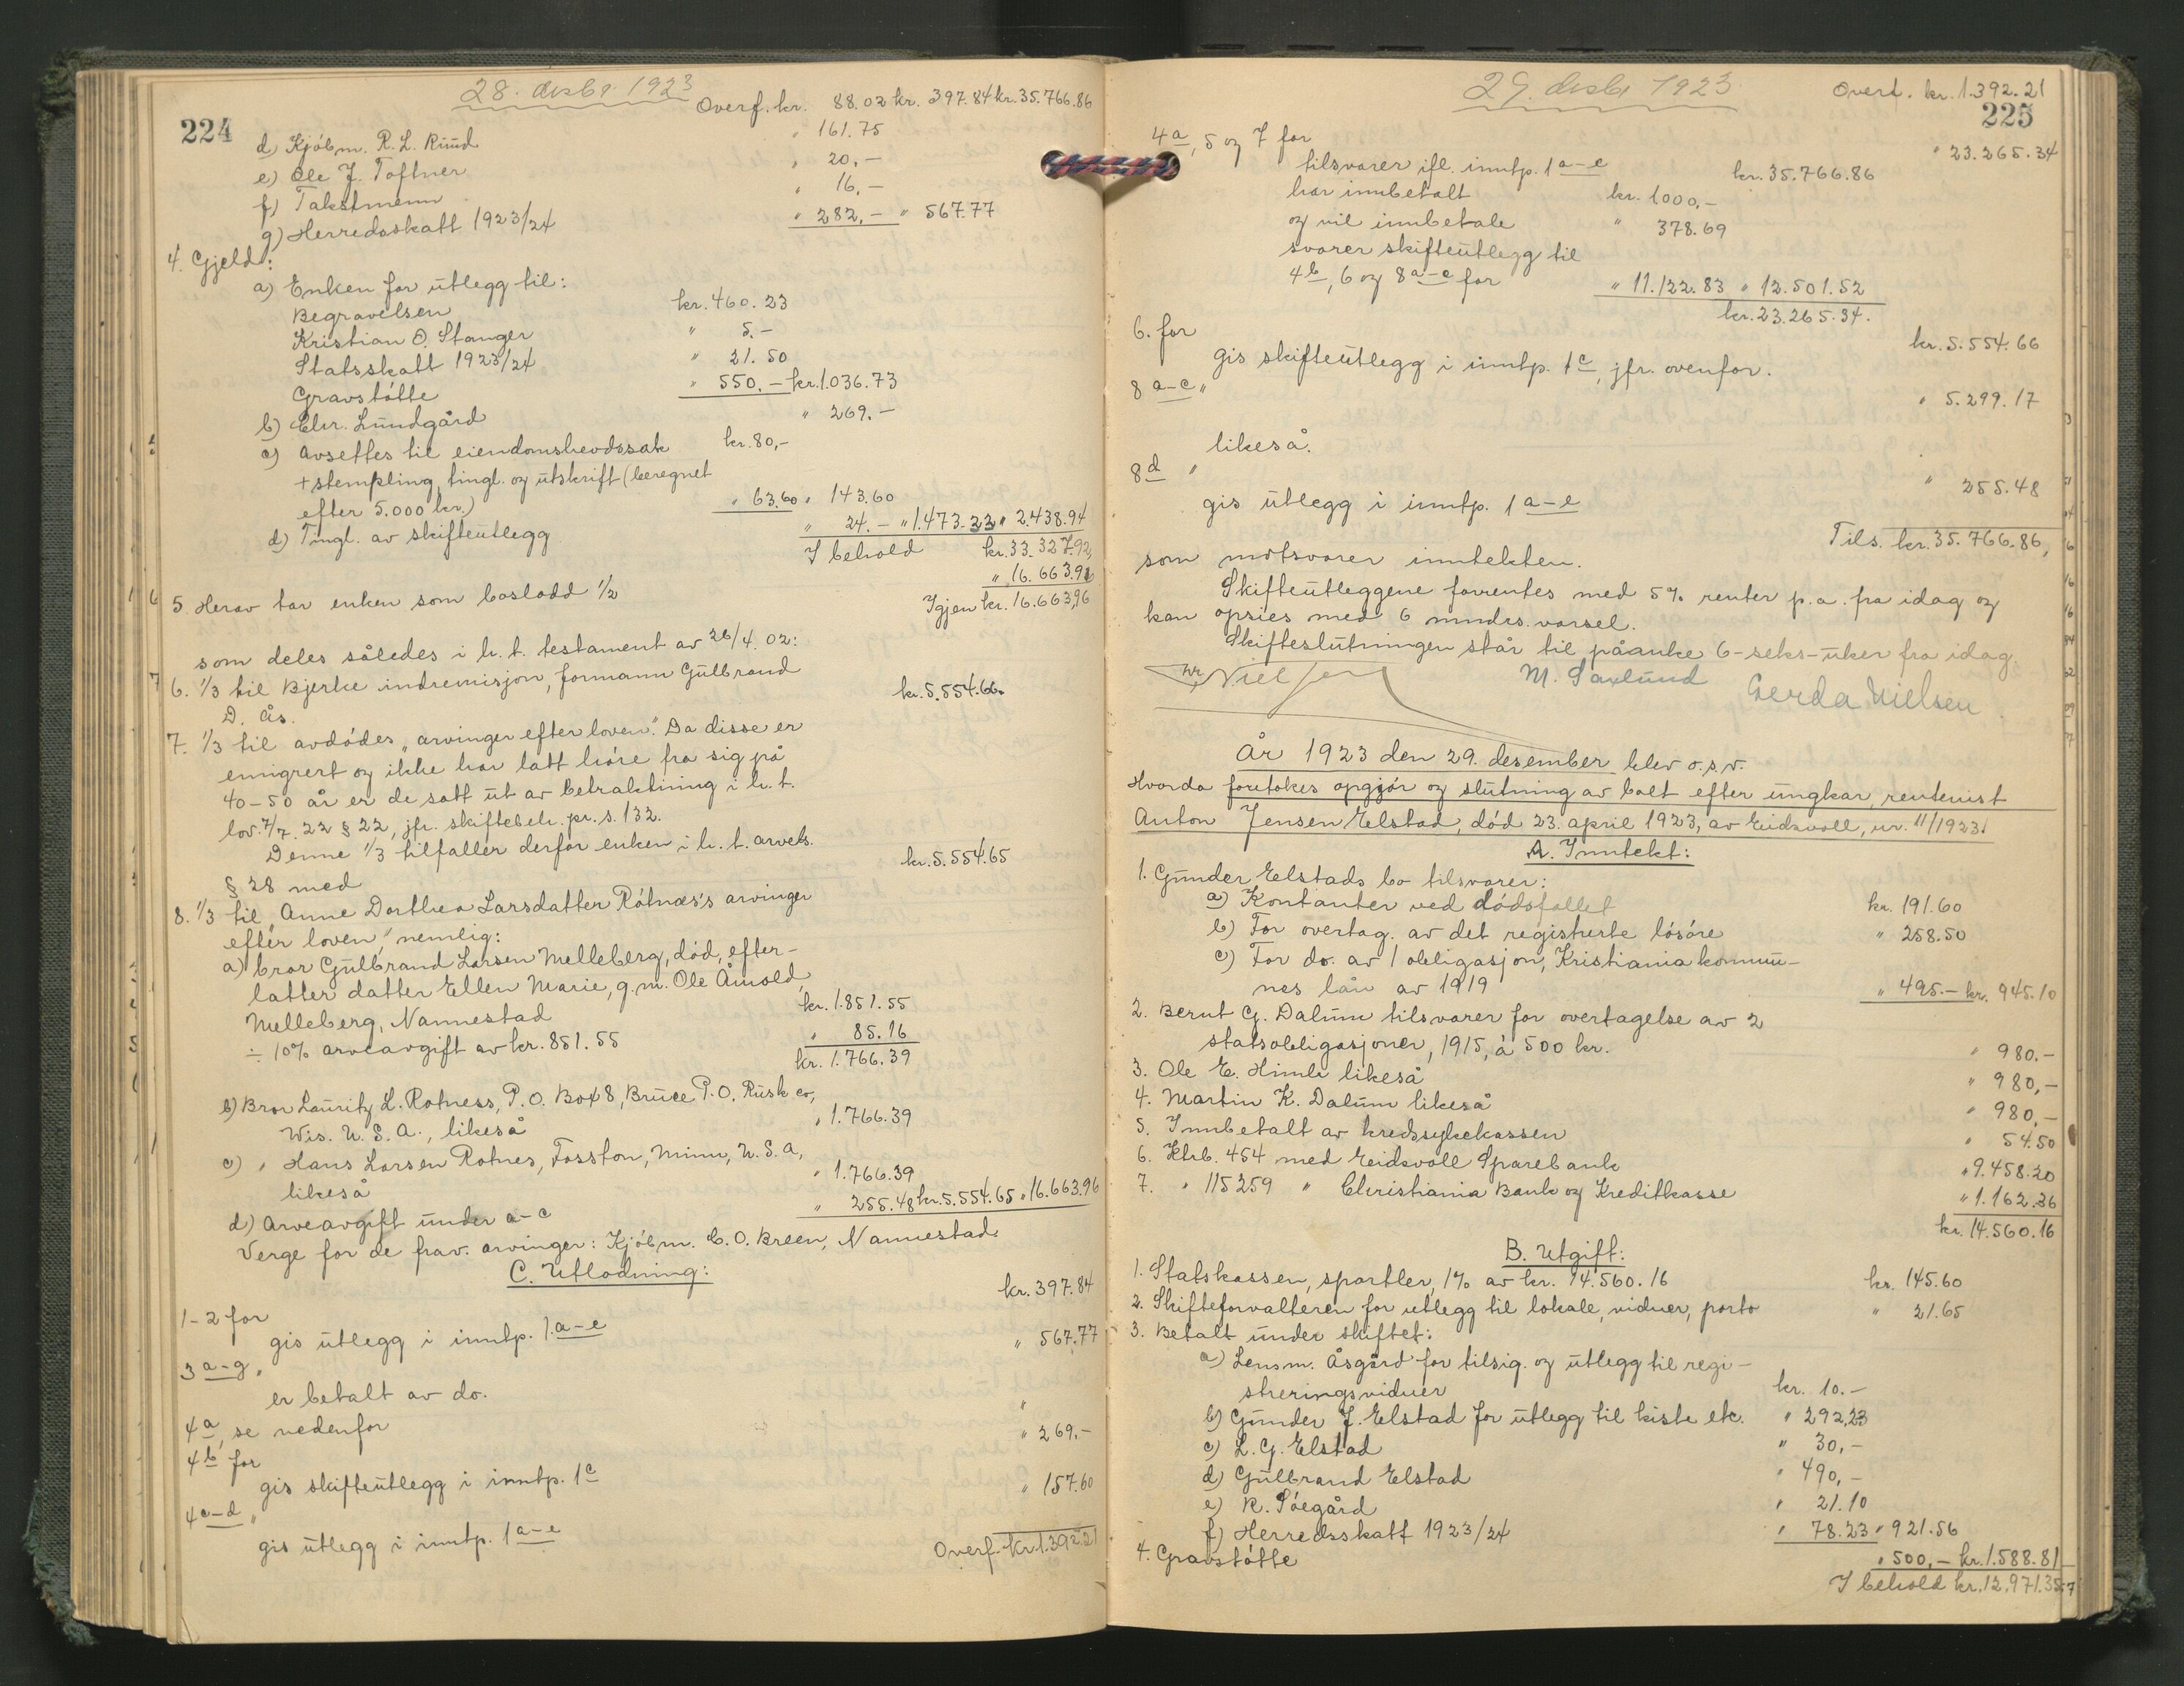 28. desbr 1923
Overf. kr. 88.02 kr. 397.84 kr. 35.766.86
224
d) Kjøbm. R. L. Ruud " 161.75
e) Ole J. Toftner " 20,-
f) Takstmenn " 16,-
g) Herredsskatt 1923/24 " 282,- " 567.77
4. Gjeld:
a) Enken for utlegg til:
Begravelsen kr. 460.23
Kristian O. Stanger " 5.-
Statsskatt 1923/24 " 21.50
Gravstøtte " 550.- kr. 1.036.73
b) Chr. Lundgård " 269.-
c) Avsettes til eiendomshevdssak kr. 80,-
+ stempling, tingl. og utskrift (beregnet
efter 5.000 kr.) " 63.60 " 143.60
d) Tingl. av skifteutlegg " 24.- " 1.473.33 " 2.438.94
I behold kr. 33.327.92,
5. Herav tar enken som boslodd 1/2 " 16.663.96
Igjen kr. 16.663,96
som deles således i h. t. testament av 26/4. 02:
6. 1/3 til Bjerke indremisjon, formann Gulbrand
D. Ås. kr. 5.554.66.
7. 1/3 til avdødes "arvinger efter loven". Da disse er
emigrert og ikke har latt høre fra sig på
40-50 år er de satt ut av betraktning i h. t.
lov. 7/7. 22 § 22, jfr. skiftebeh. pr. s. 132.
Denne 1/3 tilfaller derfor enken i h. t. arvels.
§ 28 med kr. 5.554.65
8. 1/3 til "Anne Dorthea Larsdatter Røtnæs's arvinger
efter loven", nemlig:
a) bror Gulbrand Larsen Melleberg, død, efter-
latter datter Ellen Marie, g. m. Ole Åmold,
Melleberg, Nannestad kr. 1.851.55
÷ 10% arveavgift av kr. 851.55 " 85.16
kr. 1.766.39
b) Bror Lauritz L. Rotness, P.O. Box 8, Bruce P.O. Rusk co,
Wis. U. S. A., likeså " 1.766.39
c) " Hans Larsen Rotnes, Fosston, Minn, U. S. A,
likeså " 1.766.39
d) Arveavgift under a-c " 255.48 kr. 5.554.65 " 16.663.96
Verge for de frav. arvinger: Kjøbm. C. O. Breen, Nannestad.
C. Utlodning:
1-2 for kr. 397.84
gis utlegg i inntp. 1. a-e
3 a-g " " 567.77
er betalt av do.
4a, se nedenfor "
4b for " 269.-
gis skifteutlegg i inntp. 1c
4c-d " " 157.60
gis utlegg i inntp. 1a-e
Overf. kr. 1.392.21
29. desbr 1923
Overf. kr. 1.392.21
225
4a, 5 og 7 for " 23.265.34
tilsvarer ifl. inntp. 1a-e kr. 35.766.86
har innbetalt kr. 1000,-
og vil innbetale " 378.69
svarer skifteutlegg til
4b, 6 og 8a-c for " 11.122.83 " 12.501.52
kr. 23.265.34.
6. for kr. 5.554.66
gis skifteutlegg i inntp. 1c, jfr. ovenfor.
8 a-c " " 5.299.17
likeså.
8d " " 255.48
gis utlegg i inntp. 1a-e
Tils. kr. 35.766.86,
som motsvarer inntekten.
Skifteutleggene forrentes med 5% renter p. a. fra idag og
kan opsies med 6 mndrs. varsel.
Skifteslutningen står til påanke 6-seks-uker fra idag.
Nielsen M. Saxlund Gerda Nielsen
År 1923 den 29. desember blev o. s. v.
Hvorda foretokes opgjør og slutning av boet efter ungkar, rentenist
Anton Jensen Elstad, død 23. april 1923, av Eidsvoll, nr. 11/1923.
A. Inntekt:
1. Gunder Elstads bo tilsvarer:
a) Kontanter ved dødsfallet kr. 191.60
b) For overtag. av det registrerte løsøre " 258.50
c) For do. av 1 obligasjon, Kristiania kommu-
nes lån av 1919 " 495.- kr. 945.10
2. Bernt G. Dalum tilsvarer for overtagelse av 2
statsobligasjoner, 1915, á 500 kr. " 980.-
3. Ole E. Himle likeså " 980,-
4. Martin K. Dalum likeså " 980,-
5. Innbetalt av kredssykekassen " 54.50
6. Ktrb. 454 med Eidsvoll Sparebank " 9.458.20
7. " 115259 " Christiania Bank og Kreditkasse " 1.162.36
kr. 14.560.16
B. Utgift:
1. Statskassen, sportler, 1% av kr. 14.560.16 kr. 145.60
2. Skifteforvalteren for utlegg til lokale, vidner, porto " 21.65
3. Betalt under skiftet:
a) Lensm. Åsgård for tilsig. og utlegg til regi-
streringsvidner kr. 10.-
b) Gunder J. Elstad for utlegg til kiste etc. " 292,23
c) L. G. Elstad " 30,-
d) Gulbrand Elstad " 490,-
e) R. Søegård " 21.10
f) Herredsskatt 1923/24 " 78.23 " 921.56
4. Gravstøtte " 500,- kr. 1.588.81
I behold kr. 12,971.35